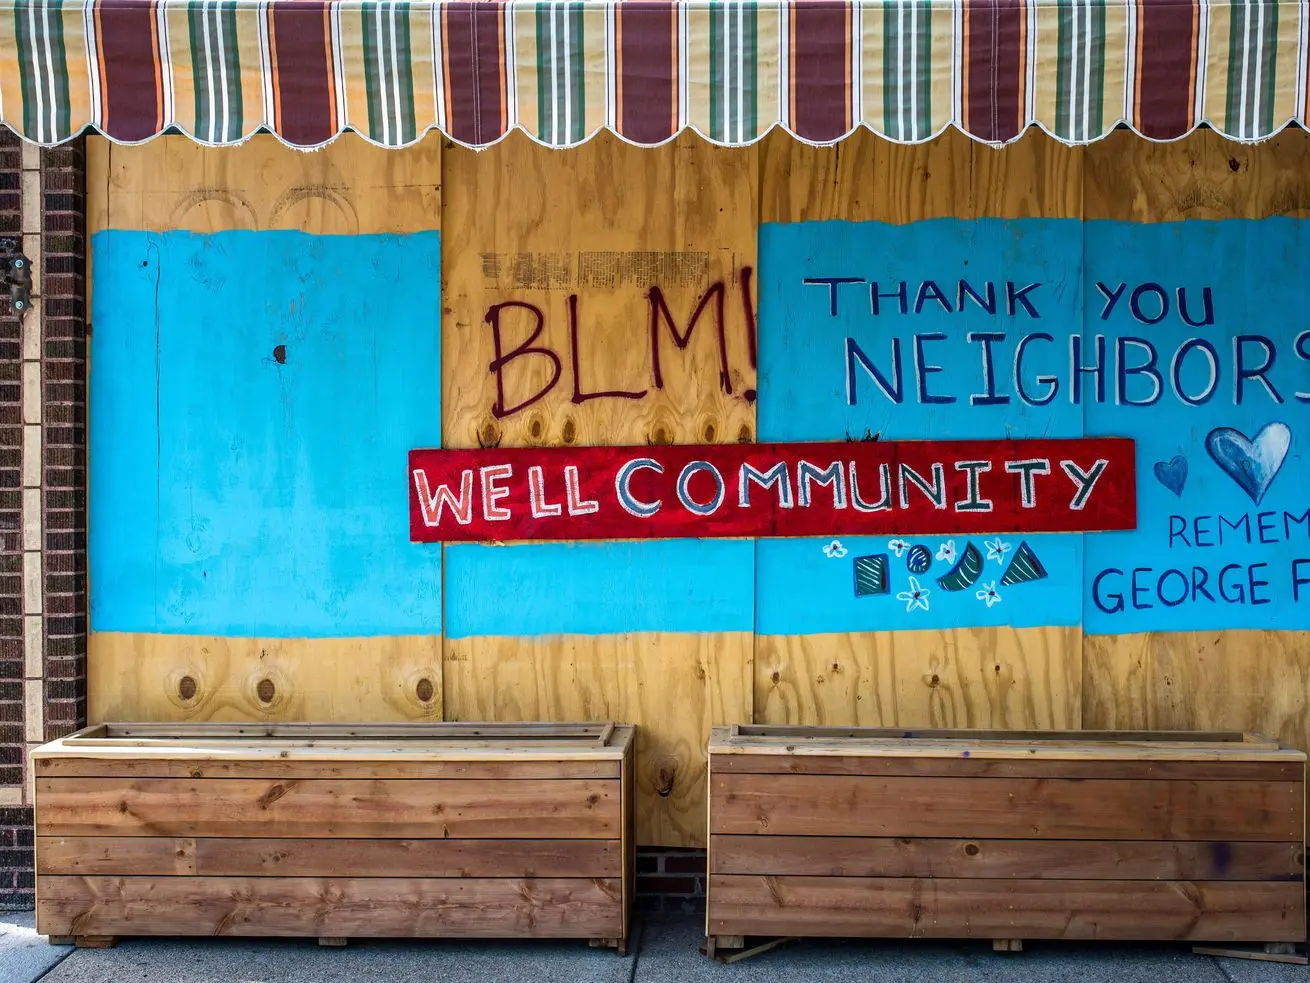 BLM!
THANK YOU
NEIGHBORS
WELL COMMUNITY
REMEM
GEORGE F